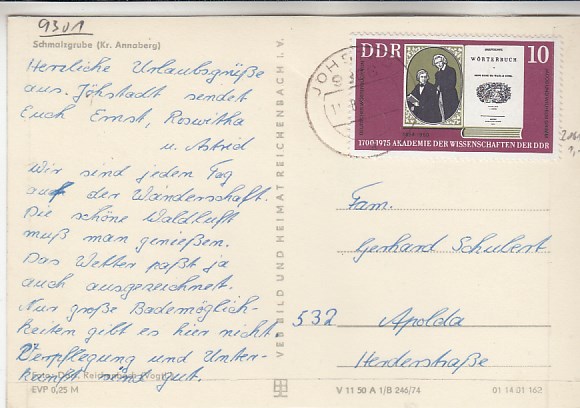 9301
Schmalzgrube (Kr. Annaberg)
Herzliche Urlaubsgrüße
aus. Jöhstadt sendet
Euch Ernst, Roswitha
u. Astrid
Wir sind jeden Tag
auf der Wanderschaft.
Die schöne Waldluft
muß man genießen.
Das Wetter paßt ja
auch ausgezeichnet.
Nur große Bademöglich-
keiten gibt es hier nicht.
Verpflegung und Unter-
kunft sind gut.
EVP 0,25 M
VEB BILD UND HEIMAT REICHENBACH i. V.
DDR
10
WÖRTERBUCH
1700-1975 AKADEMIE DER WISSENSCHAFTEN DER DDR
Fam.
Gerhard Schubert
532 Apolda
Herderstraße
V 11 50 A 1/B 246/74
01 14 01 162